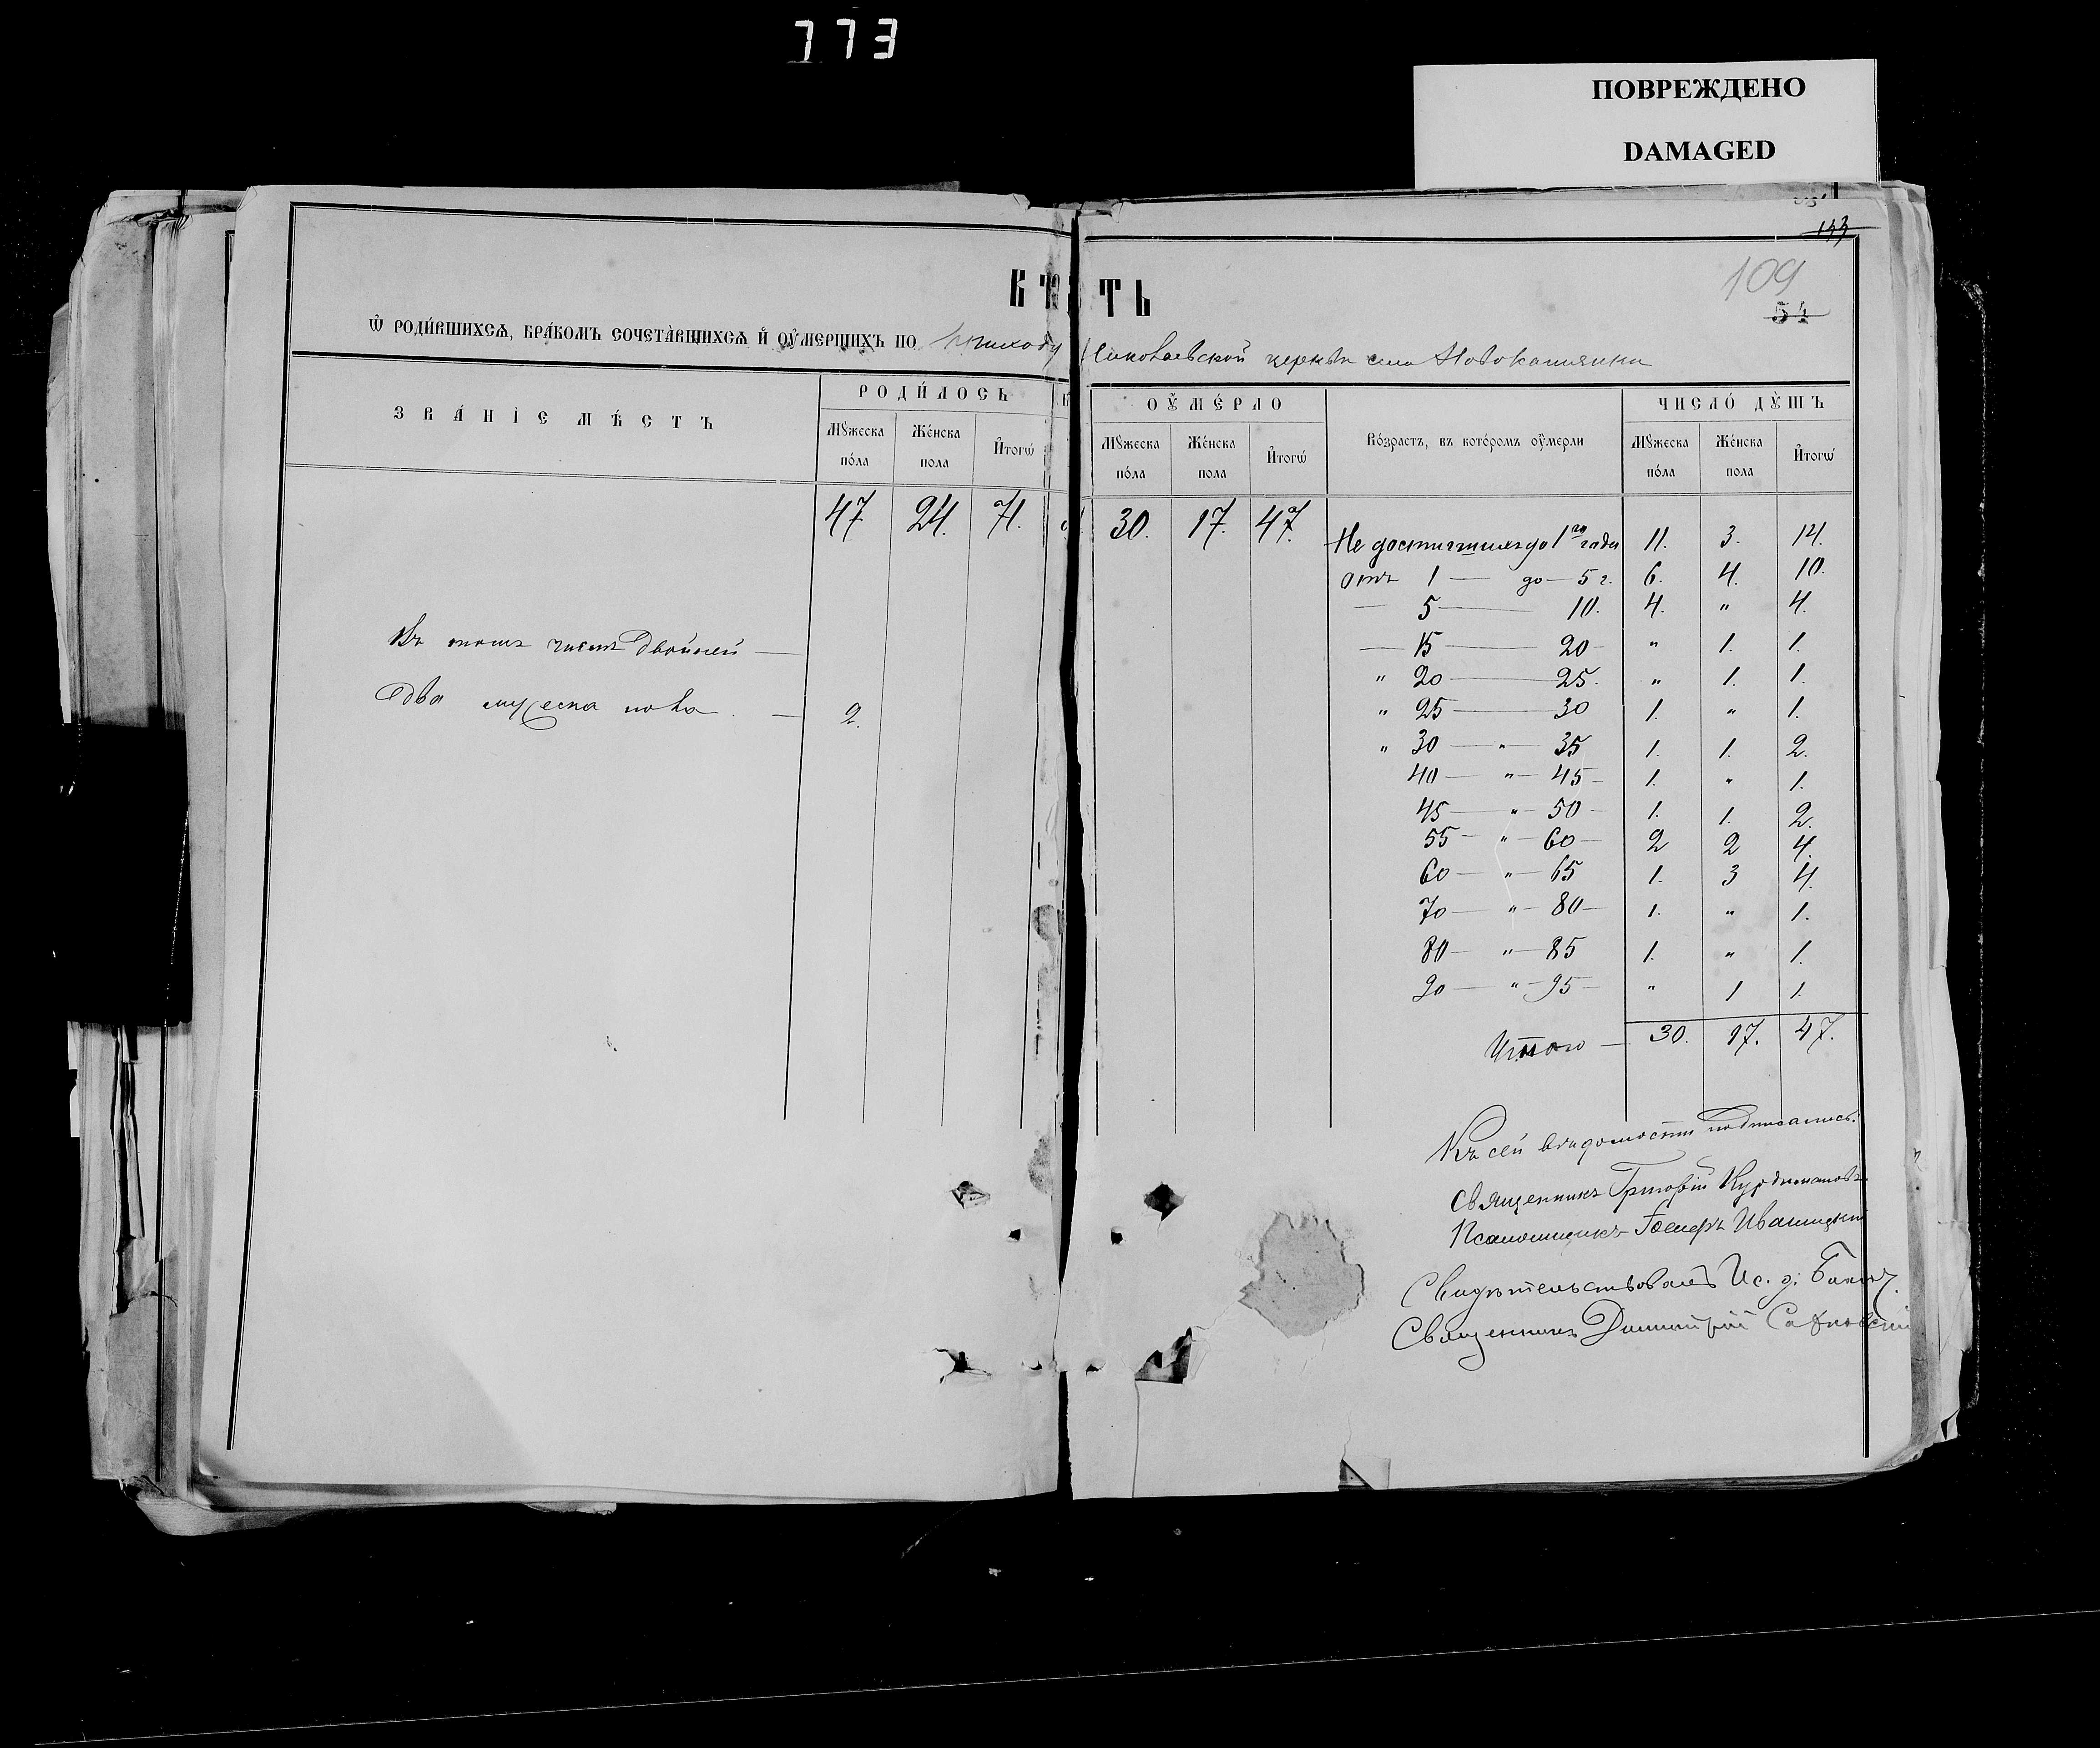 773
ПОВРЕЖДЕНО
DAMAGED
133
109
54
ВѢ ТЬ
Ѡ РОДИ́ВШИХСѦ, БРА́КОМЪ СОЧЕТА́ВШИХСѦ И҆ ОУ҆МЕРШИХЪ ПО приходу Николаевской церкви села Новокаменки
ЗВА́НІЕ МѢ́СТЪ
РОДИ́ЛОСЬ
Мꙋ́жеска по́ла
Же́нска пола
И҆тогѡ̀
ОУ҆МЕ́РЛО
Мꙋ́жеска по́ла
Же́нска пола
И҆тогѡ̀
Во́зрастъ, въ кото́ромъ оу҆мерли
ЧИСЛО́ ДꙊШЪ
Мꙋ́жеска по́ла
Же́нска пола
И҆тогѡ̀
47 24. 71. 30. 17. 47.
Не достигшихъ до 1го года 11. 3. 14.
Отъ 1 — до — 5 г. 6. 4. 10.
— 5 — 10. 4. " 4.
— 15 — 20 — " 1. 1.
" 20 — 25. " 1. 1.
" 25 — 30 1. " 1.
" 30 — " — 35 1. 1. 2.
40 — " — 45 — 1. " 1.
45 — " — 50 — 1. 1. 2.
55 — " — 60 — 2 2 4.
60 — " — 65 1. 3 4.
70 — " — 80 — 1. " 1.
80 — " — 85 1. " 1.
90 — " — 95 — " 1 1.
Итого — 30. 17. 47.
Въ томъ числѣ двойней —
Два мужеска пола. — 2.
Къ сей вѣдомости подписались:
Священникъ Григорій
Псаломщикъ Ивашицкій
Свидѣтельствовалъ Ис. д. Благоч.
Священникъ Димитрій